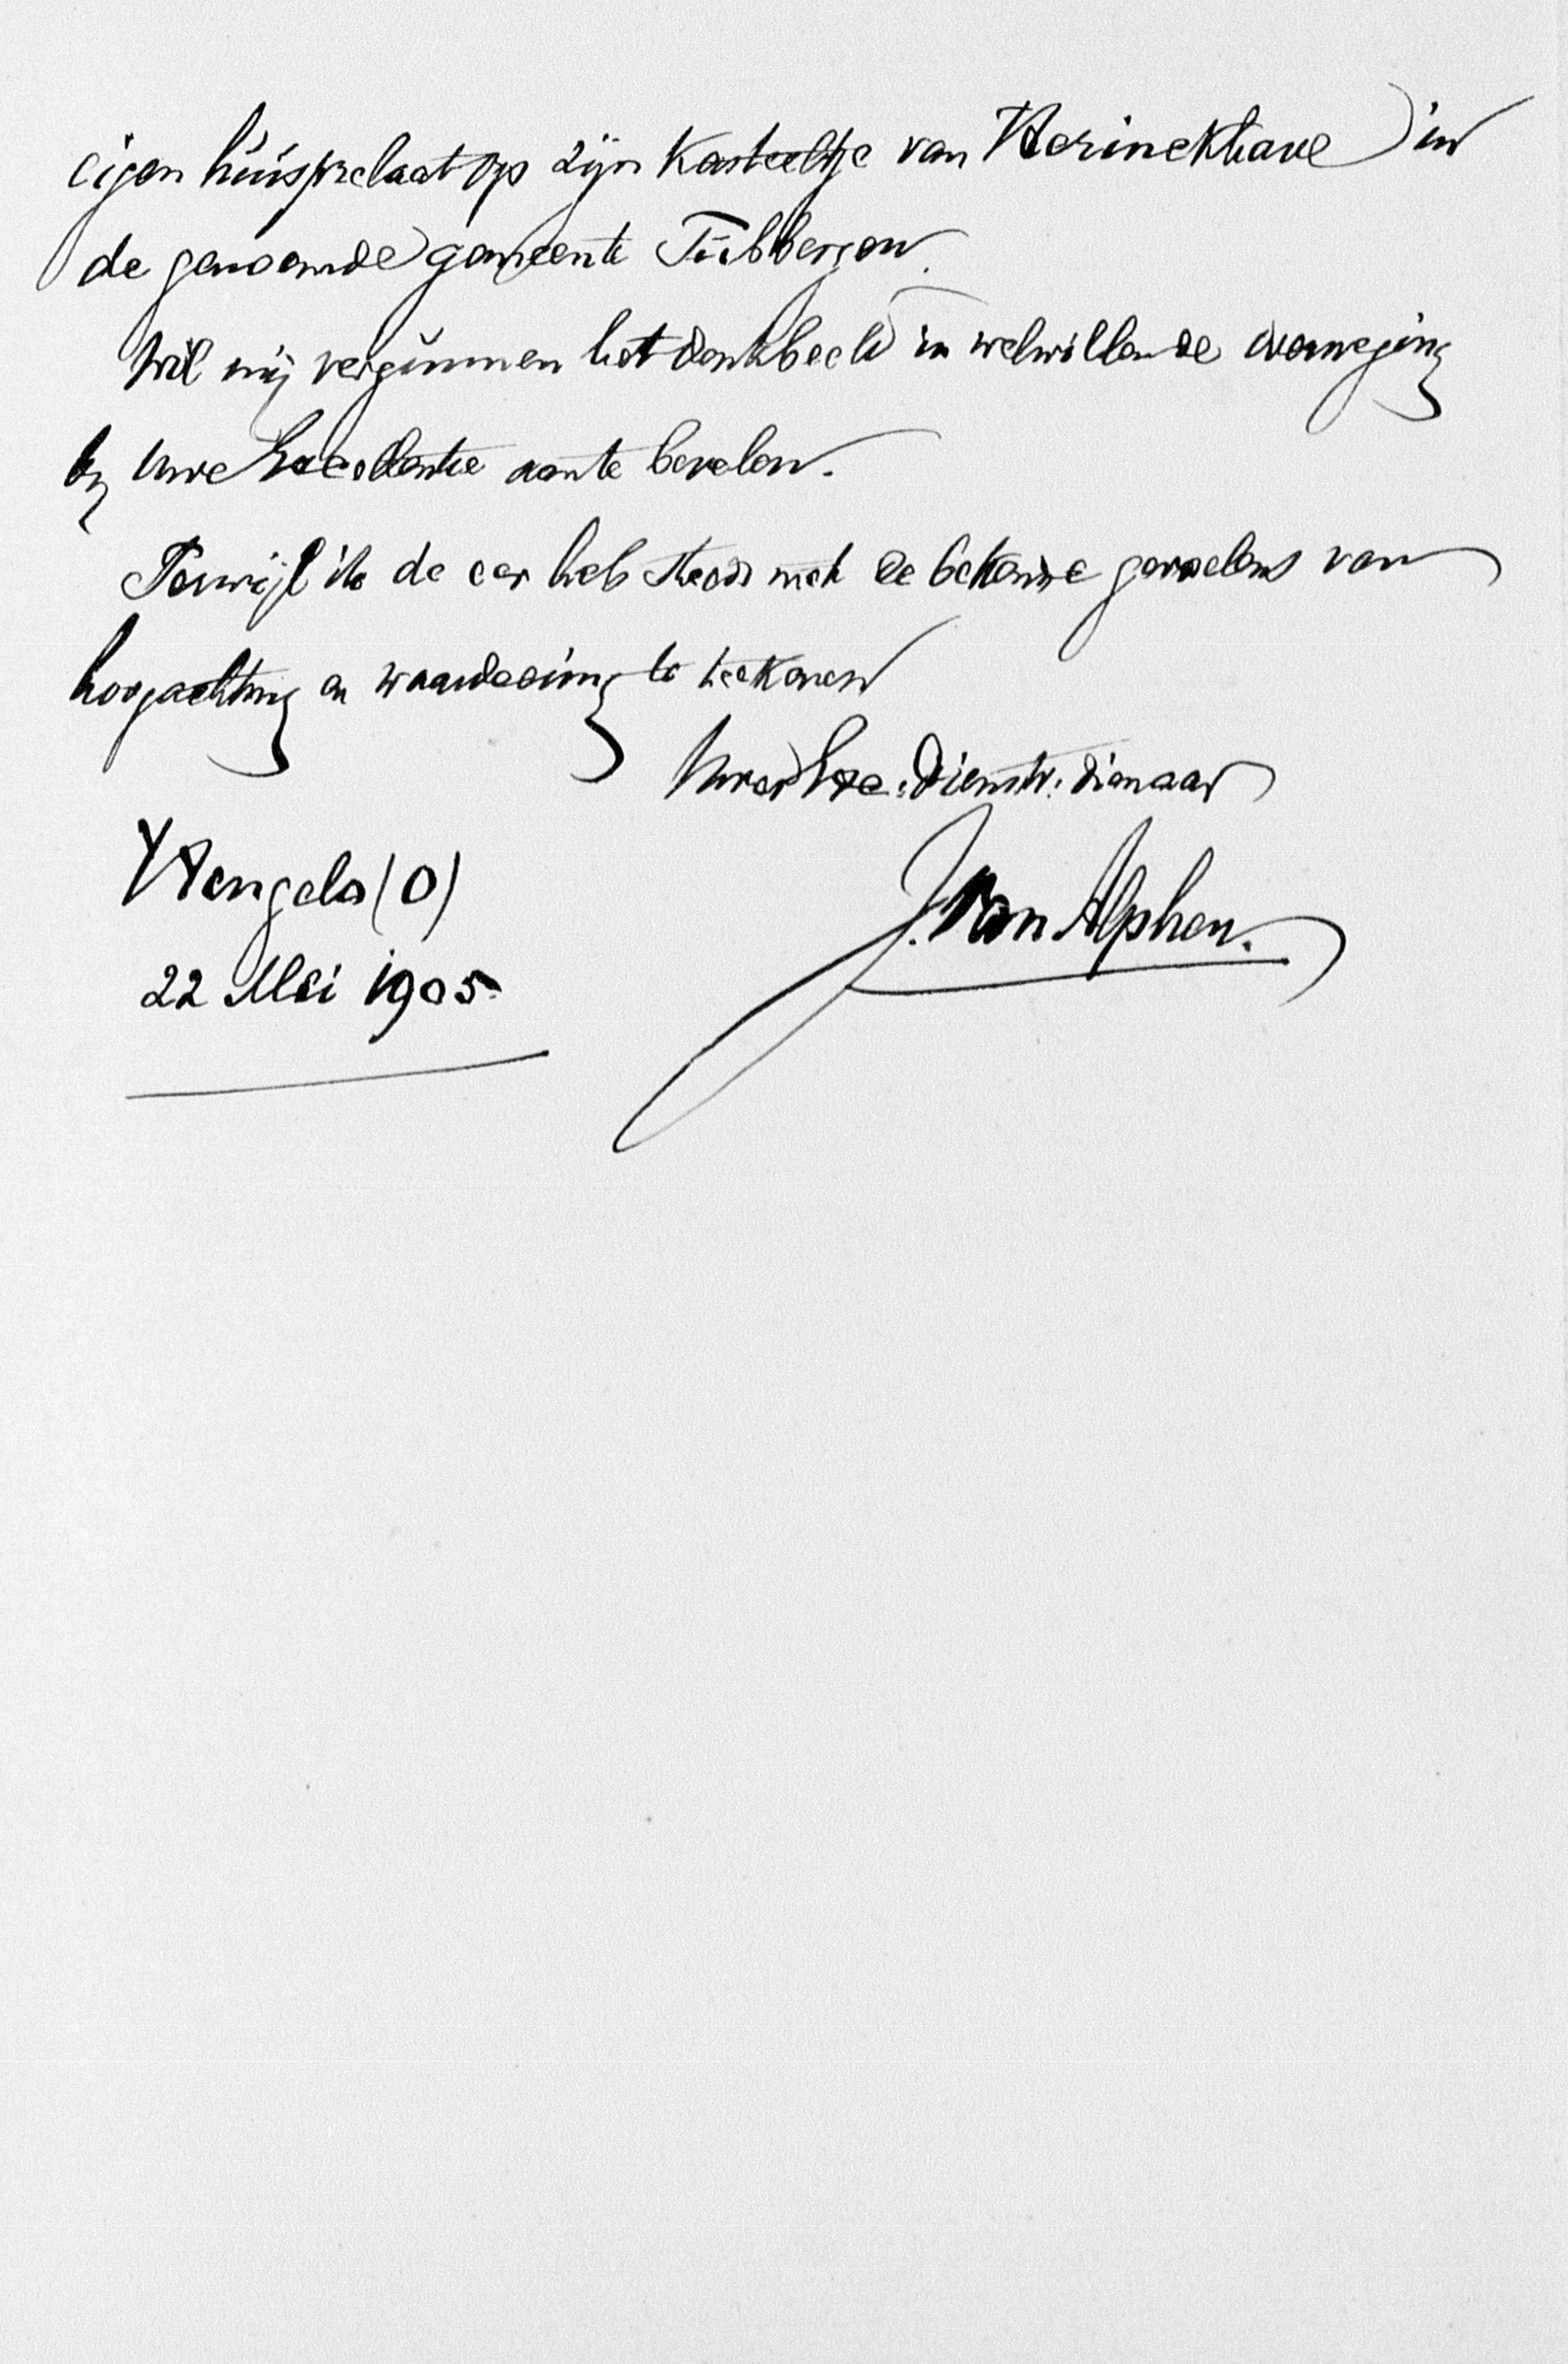 eigen huisprelaat op zijn Kasteeltje van Herinckhave in
de genoemde gemeente Tubbergen.
Wil mij vergunnen het denkbeeld in welwillende overweging
bij Uwe Excellentie aan te bevelen.
Terwijl ik de eer heb steeds met de bekende gevoelens van
hoogachting en waardeering te teekenen
Uwer Exc: Dienstw: dienaar
J. van Alphen.
Hengelo (O)
22 Mei 1905